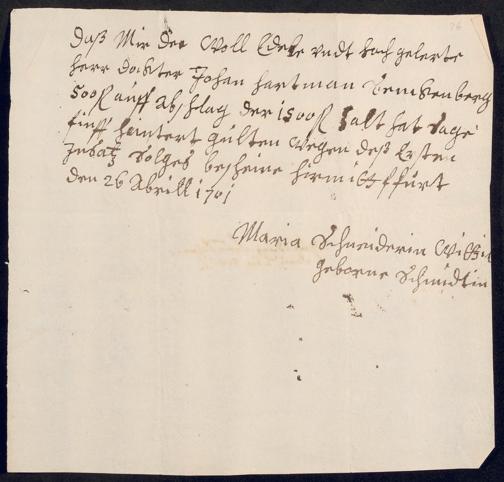 daß Mir der Woll Edele undt hoch gelerte
herr dockter Johan hartman Senckenberg
500 fl auff Abschlag der 1500 fl Zalt hat sage
finff huntert gulten wegen deß Ersten
Zusatz Solges bescheine hirmitt ffurt
den 26 Abrill 1701
Maria Schneiderin Wittib
geborne Schmidtin